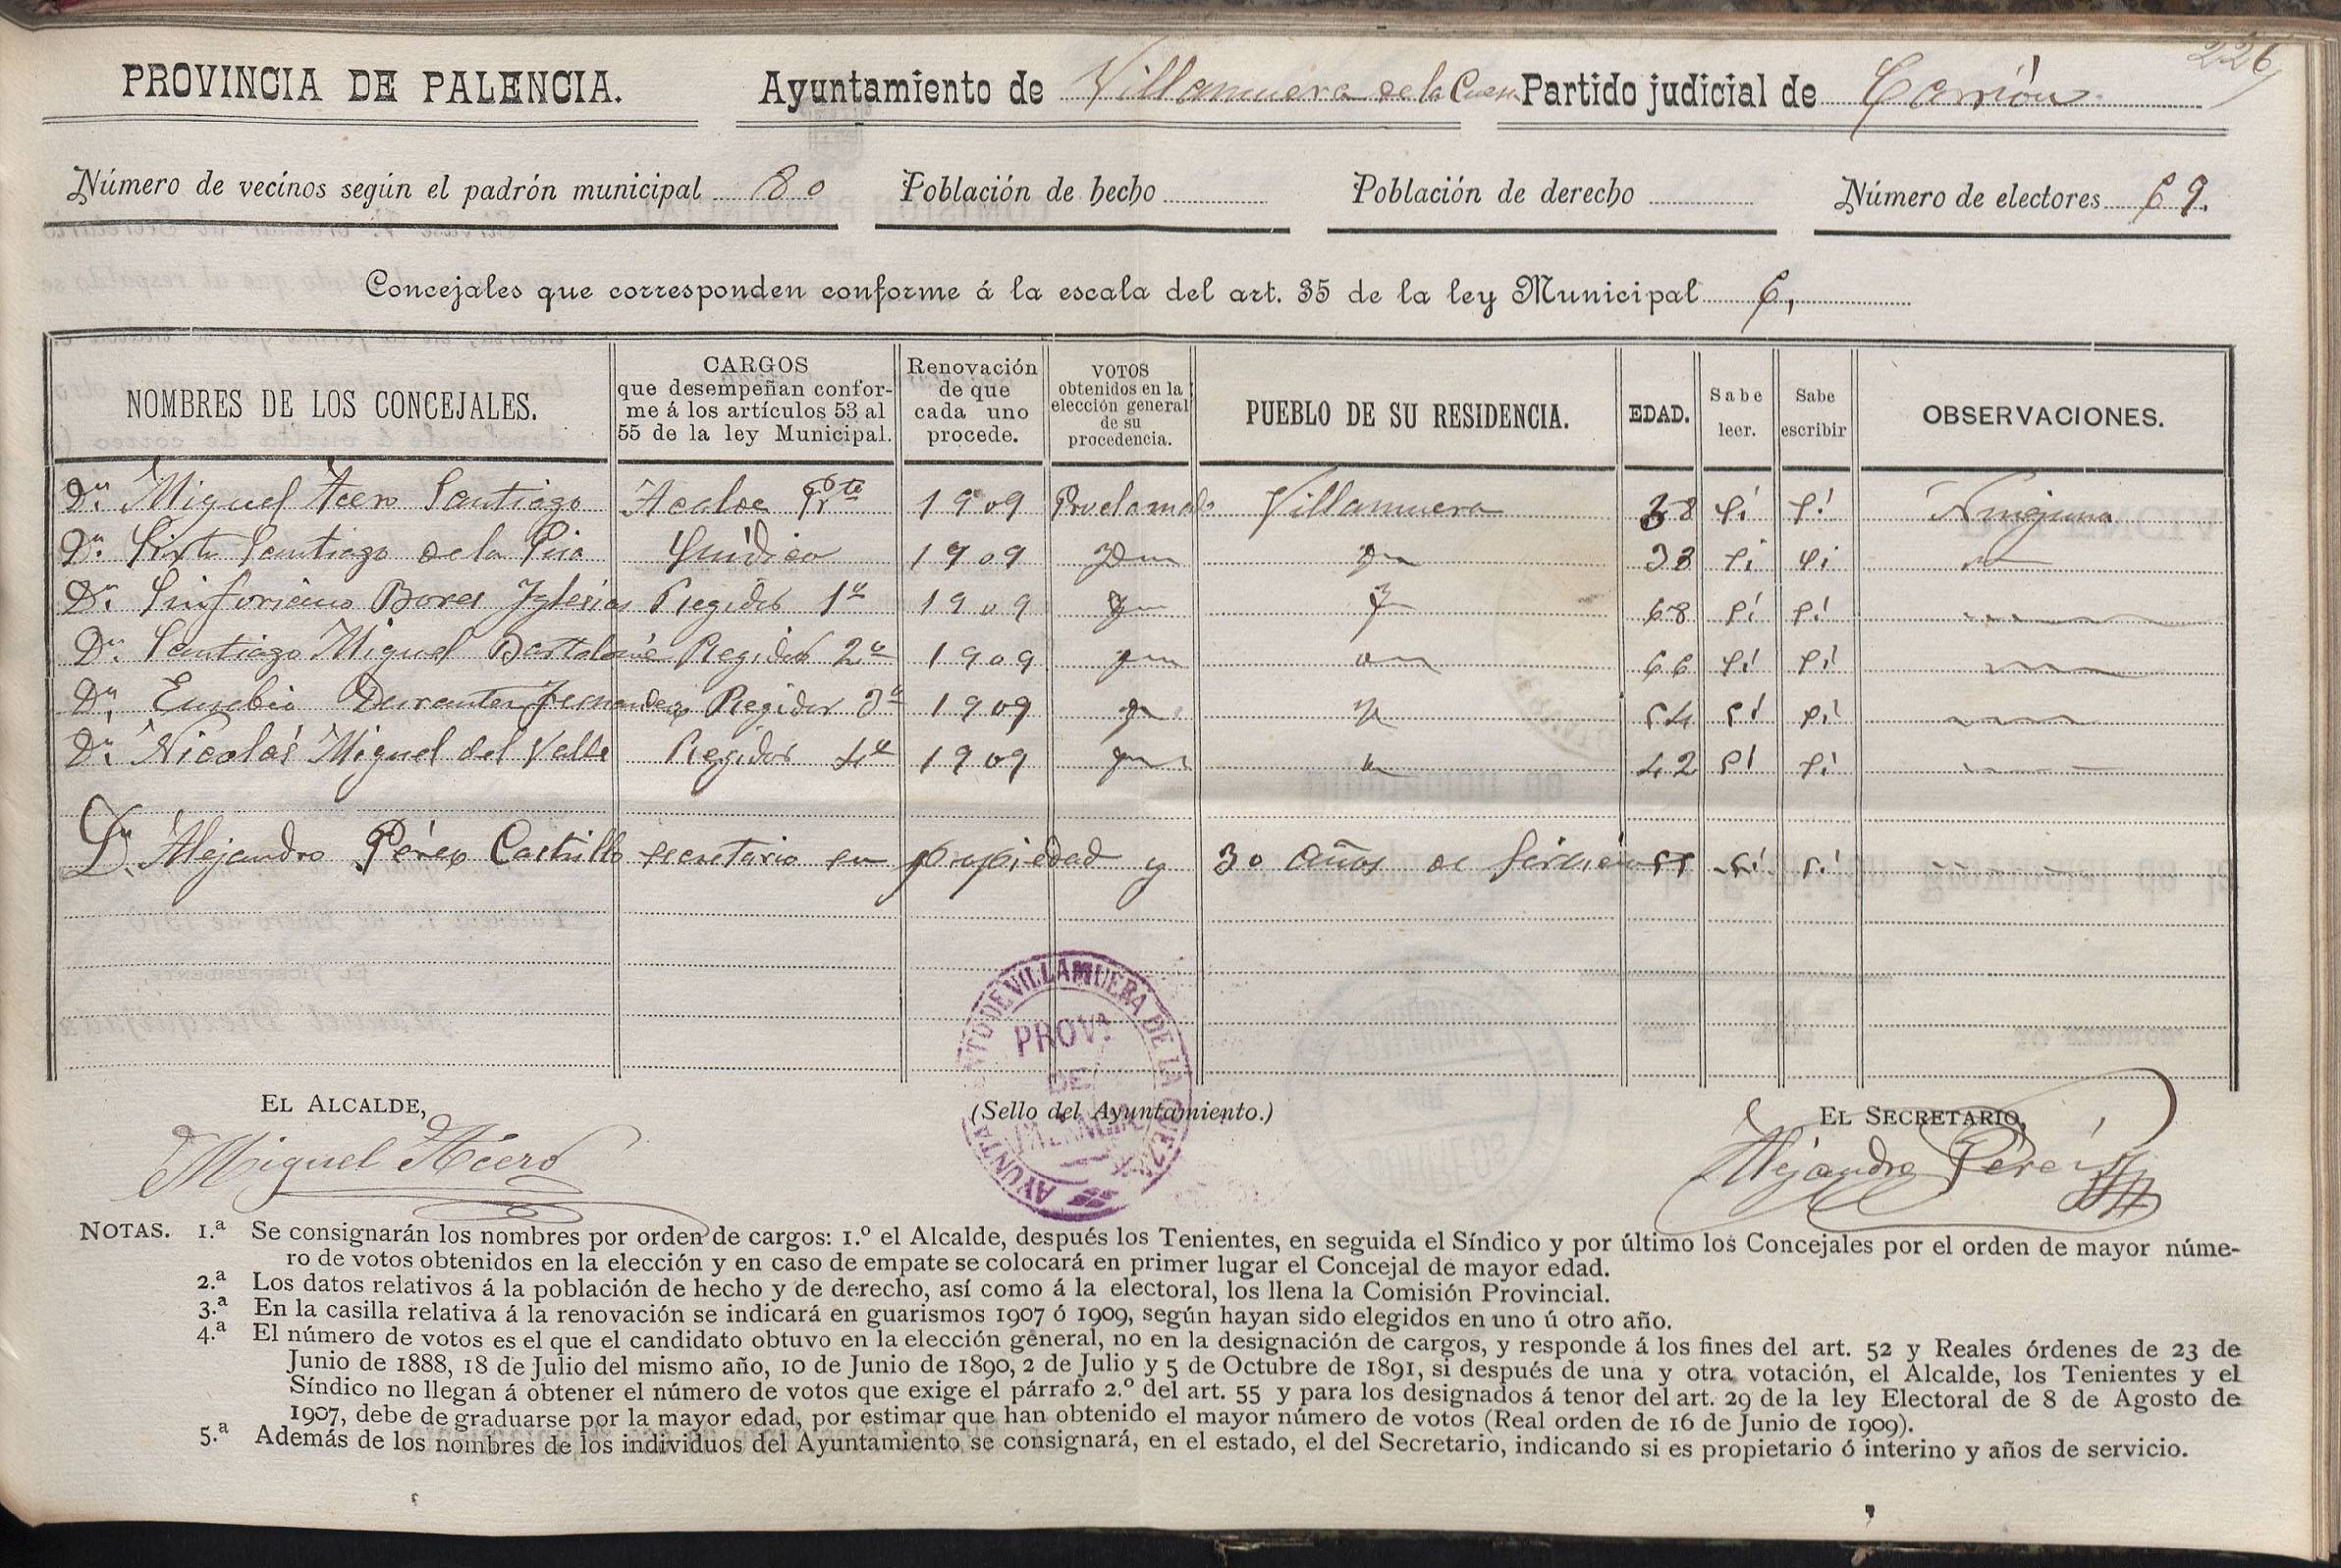 226
PROVINCIA DE PALENCIA. Ayuntamiento de Villamuera de la Cueza Partido judicial de Carrión
Número de vecinos según el padrón municipal 80 Población de hecho Población de derecho Número de electores 69.
Concejales que corresponden conforme á la escala del art. 35 de la ley Municipal 6,
NOMBRES DE LOS CONCEJALES. CARGOS que desempeñan confor-me á los artículos 53 al 55 de la ley Municipal. Renovación de que cada uno procede. VOTOS obtenidos en la elección general de su procedencia. PUEBLO DE SU RESIDENCIA. EDAD. Sabe leer. Sabe escribir OBSERVACIONES.
Dn. Miguel Acero Santiago Acalde Prte 1909 Proclamado Villamuera 38 Sí Sí Ninguna
Dn. Sixto Santiago de la Pisa Síndico 1909 38 Si Si
Dn. Sinforiano Bores Iglesias Regidor 1º 1909 68 Sí Sí
Dn. Santiago Miguel Bartolomé Regidor 2º 1909 66 Sí Sí
Dn. Eusebio Durantez Fernandez Regidor 3º 1909 54 Sí Sí
Dn. Nicolás Miguel del Valle Regidor 4º 1909 42 Sí Sí
Dn. Alejandro Pérez Castrillo secretario en propiedad y 30 años de servicio 55 Sí Sí
AYUNTAMIENTO DE VILLAMUERA DE LA CUEZA
PROVª DE PALENCIA
EL ALCALDE, (Sello del Ayuntamiento.) EL SECRETARIO,
Miguel Acero Alejandro Pérez
NOTAS. 1.ª Se consignarán los nombres por orden de cargos: 1.º el Alcalde, después los Tenientes, en seguida el Síndico y por último los Concejales por el orden de mayor núme-
ro de votos obtenidos en la elección y en caso de empate se colocará en primer lugar el Concejal de mayor edad.
2.ª Los datos relativos á la población de hecho y de derecho, así como á la electoral, los llena la Comisión Provincial.
3.ª En la casilla relativa á la renovación se indicará en guarismos 1907 ó 1909, según hayan sido elegidos en uno ú otro año.
4.ª El número de votos es el que el candidato obtuvo en la elección general, no en la designación de cargos, y responde á los fines del art. 52 y Reales órdenes de 23 de
Junio de 1888, 18 de Julio del mismo año, 10 de Junio de 1890, 2 de Julio y 5 de Octubre de 1891, si después de una y otra votación, el Alcalde, los Tenientes y el
Síndico no llegan á obtener el número de votos que exige el párrafo 2.º del art. 55 y para los designados á tenor del art. 29 de la ley Electoral de 8 de Agosto de
1907, debe de graduarse por la mayor edad, por estimar que han obtenido el mayor número de votos (Real orden de 16 de Junio de 1909).
5.ª Además de los nombres de los individuos del Ayuntamiento se consignará, en el estado, el del Secretario, indicando si es propietario ó interino y años de servicio.